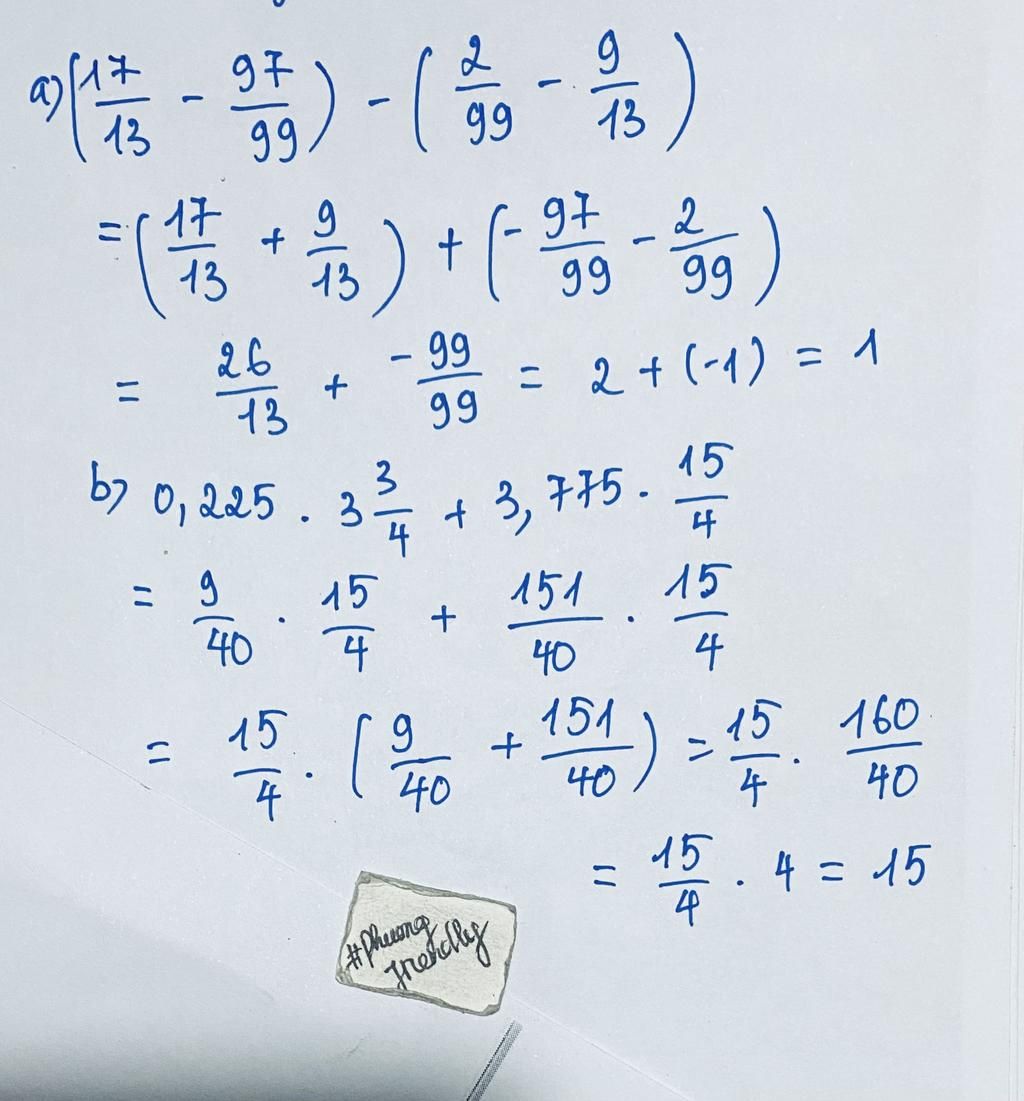 a) (17/13 - 97/99) - (2/99 - 9/13)
= (17/13 + 9/13) + (- 97/99 - 2/99)
= 26/13 + -99/99 = 2 + (-1) = 1
b) 0,225 . 3 3/4 + 3,775 . 15/4
= 9/40 . 15/4 + 151/40 . 15/4
= 15/4 . (9/40 + 151/40) = 15/4 . 160/40
= 15/4 . 4 = 15
#Phuong
friendly